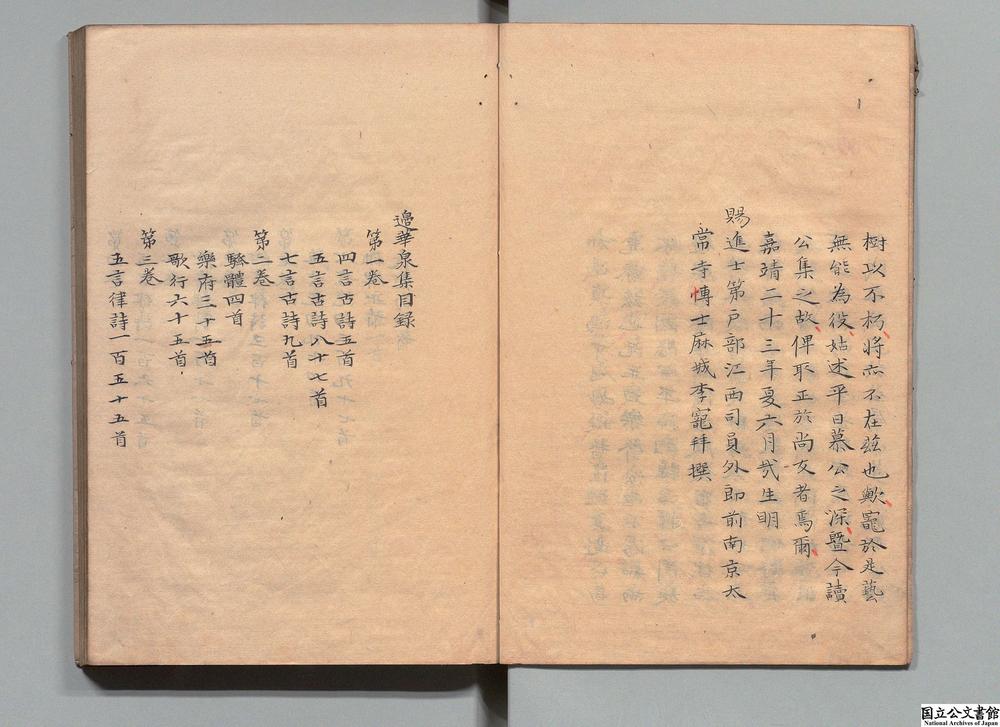 樹以不朽將亦不在玆也歟寵於是藝
無能為役姑述平日慕公之深暨今讀
公集之故俾取正於尚友者焉爾
嘉靖二十三年夏六月哉生明
賜進士第戶部江西司員外郎前南京太
常寺博士麻城李寵拜撰
邊華泉集目録
第一卷
四言古詩五首
五言古詩八十七首
七言古詩九首
第二卷
騷體四首
樂府三十五首
歌行六十五首
第三卷
五言律詩一百五十五首
国立公文書館
National Archives of Japan